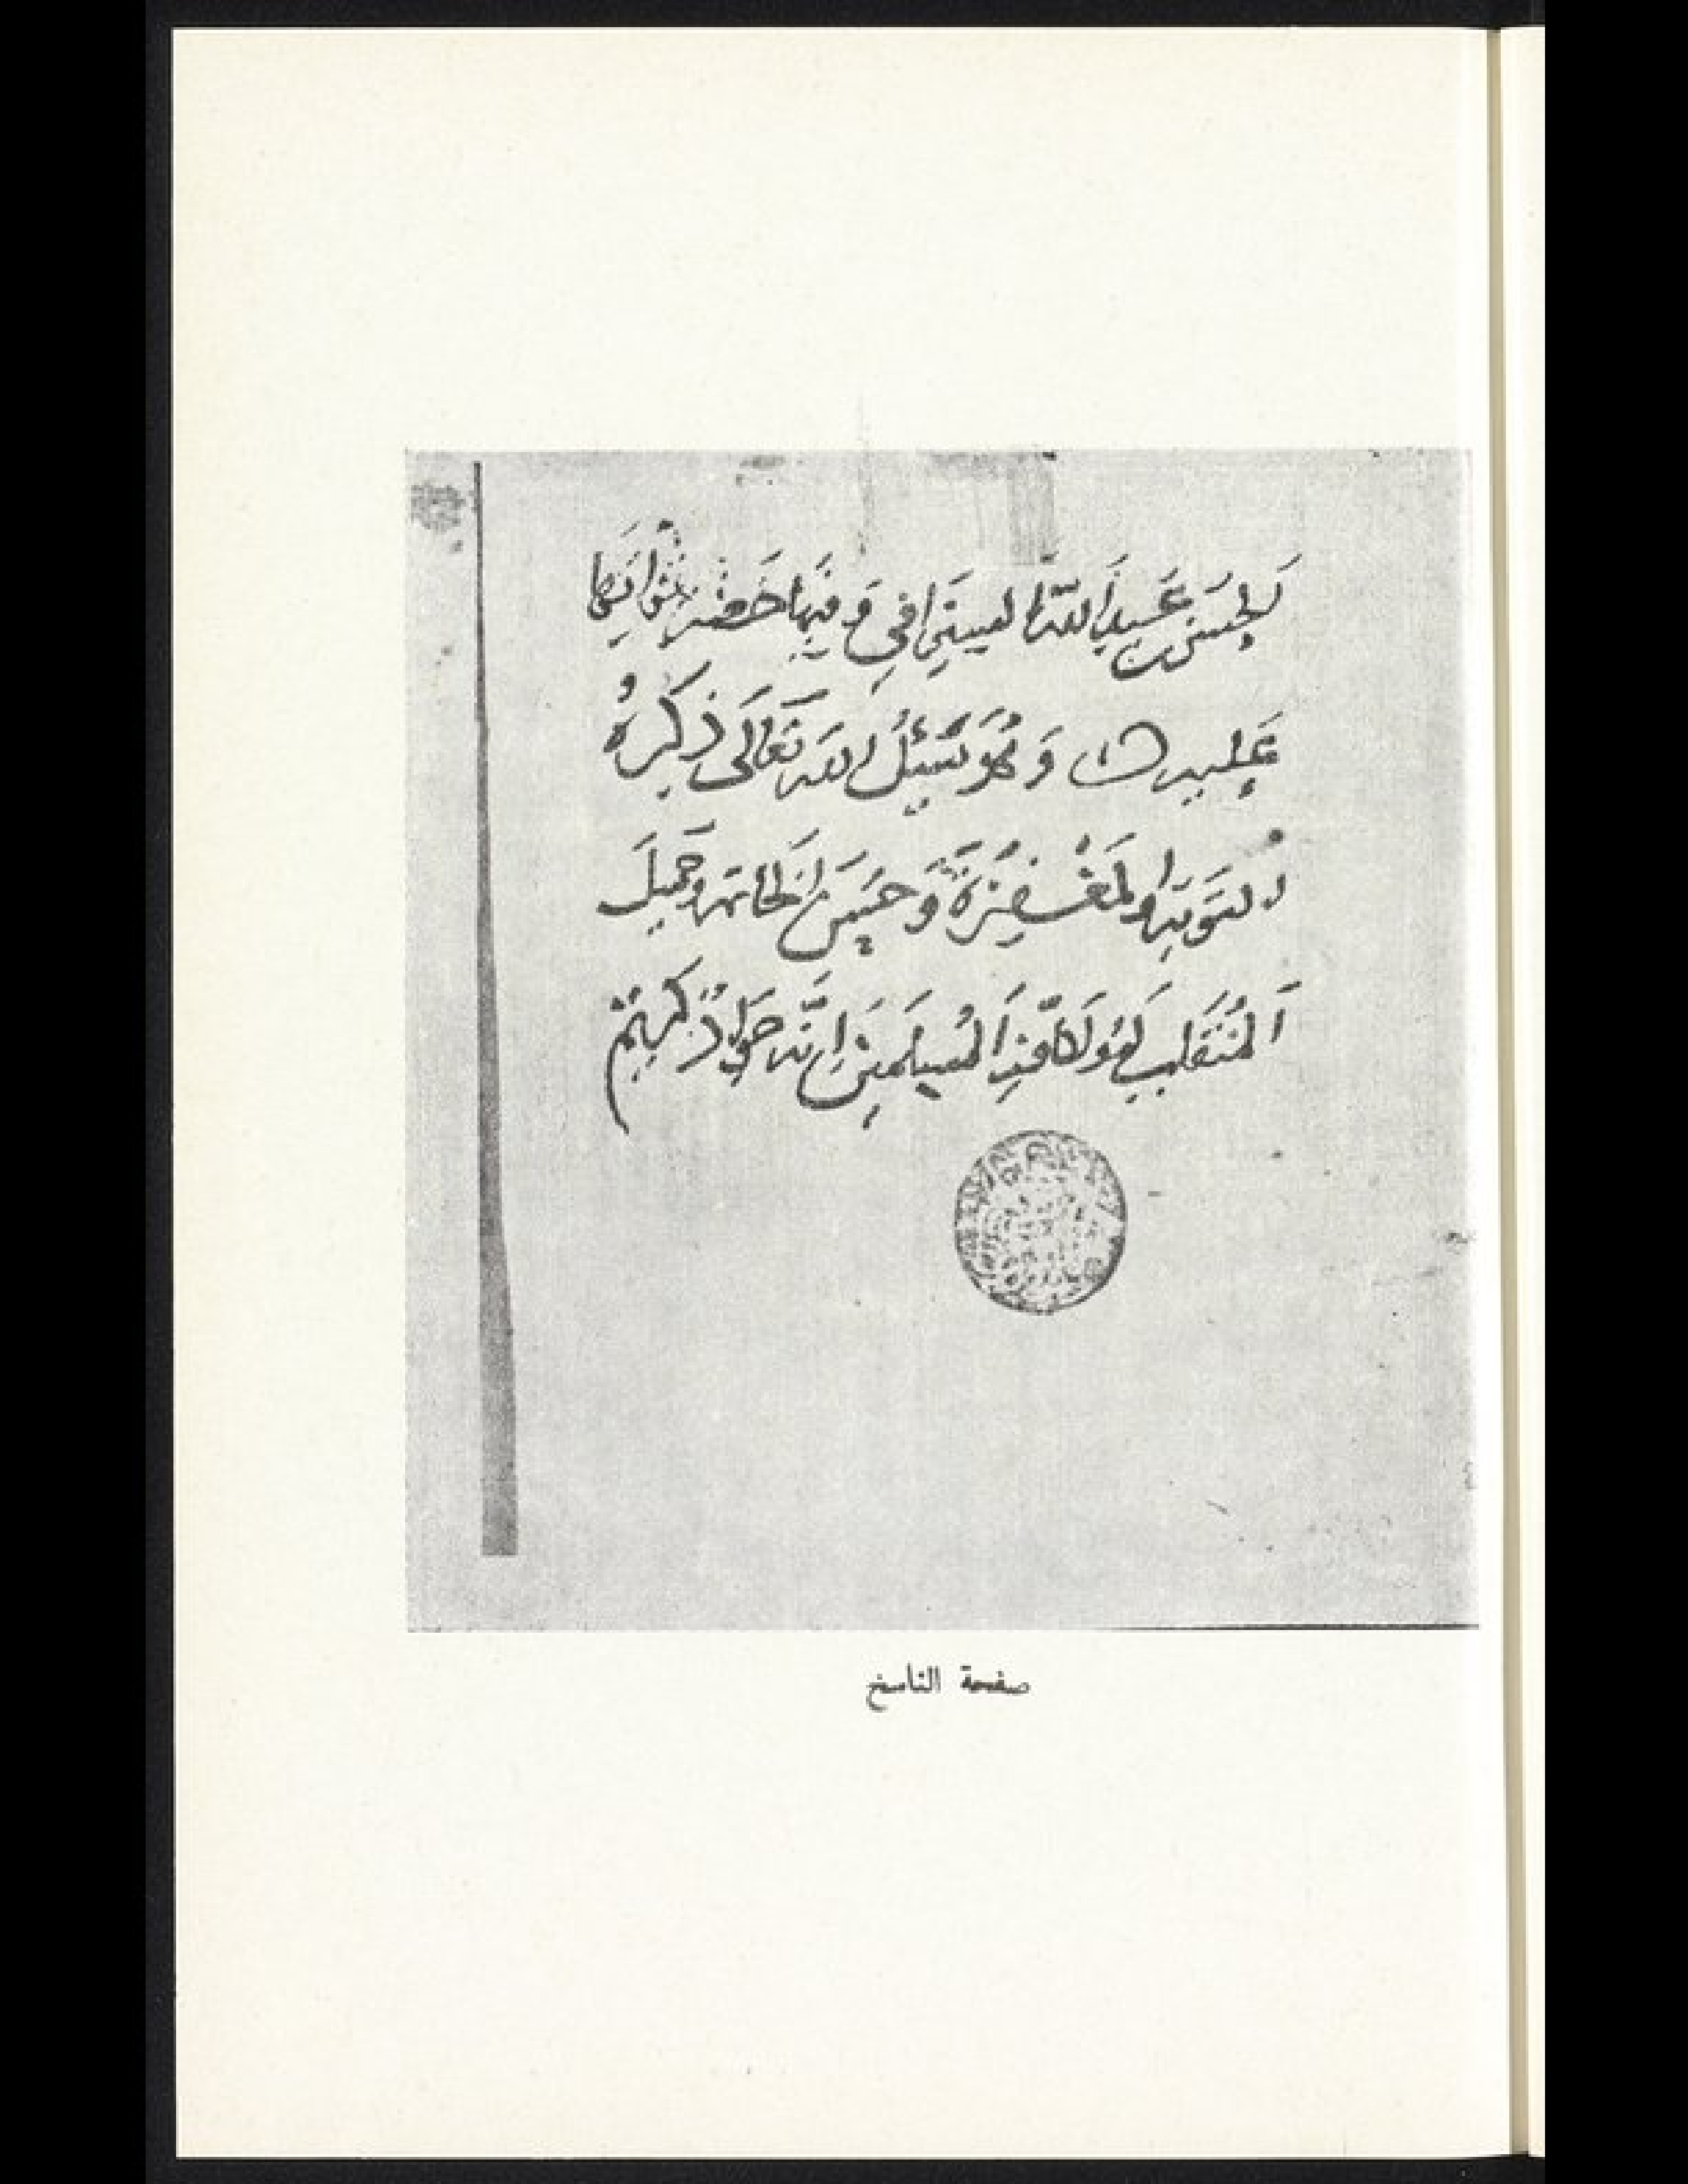 لحسن عبيد الله السيرافي وفيها خضر قراتها
عليه وهو يسئل الله تعالى ذكره
التوبة والمَغْفِرَةَ وَحسن الخاتمه وجميل
اَلمُنْقَلَب لَهُ وَلكافّة المُسلمين اِنّه جَوَادٌ كَرِيمٌ
صفحة الناسخ